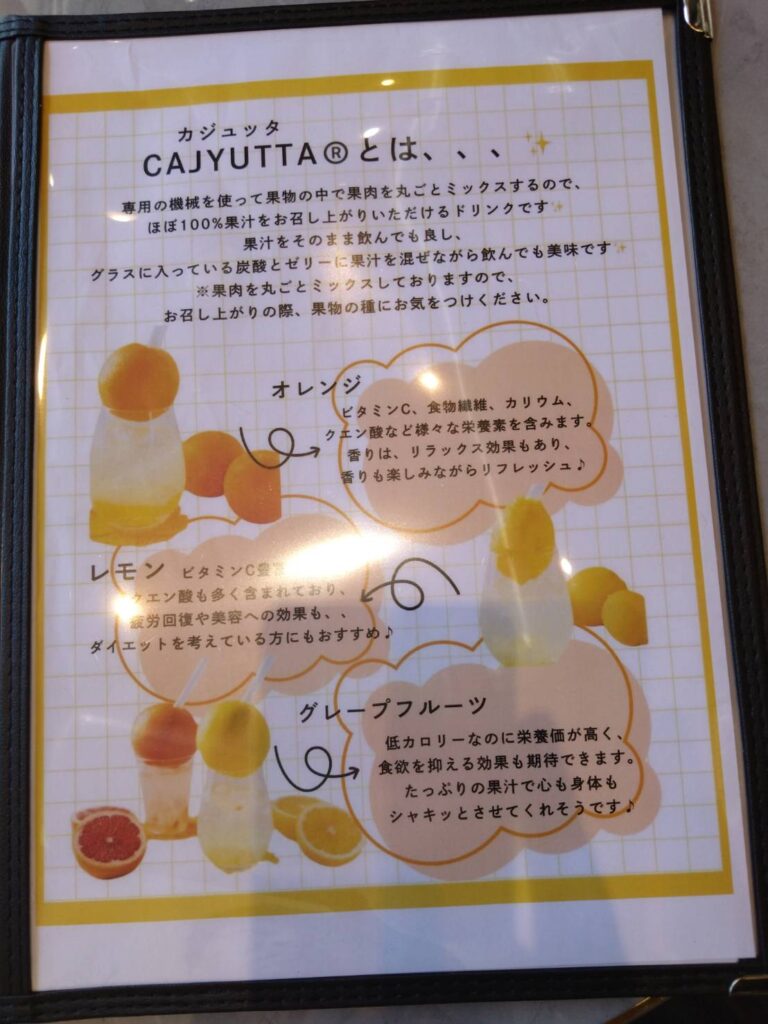 カジュッタ
CAJYUTTA®とは、、、
専用の機械を使って果物の中で果肉を丸ごとミックスするので、
ほぼ100%果汁をお召し上がりいただけるドリンクです✨
果汁をそのまま飲んでも良し、
グラスに入っている炭酸とゼリーに果汁を混ぜながら飲んでも美味です✨
※果肉を丸ごとミックスしておりますので、
お召し上がりの際、果物の種にお気をつけください。
オレンジ
ビタミンC、食物繊維、カリウム、
クエン酸など様々な栄養素を含みます。
香りは、リラックス効果もあり、
香りも楽しみながらリフレッシュ♪
レモン ビタミンC豊
クエン酸も多く含まれており、
疲労回復や美容への効果も、、
ダイエットを考えている方にもおすすめ♪
グレープフルーツ
低カロリーなのに栄養価が高く、
食欲を抑える効果も期待できます。
たっぷりの果汁で心も身体も
シャキッとさせてくれそうです♪